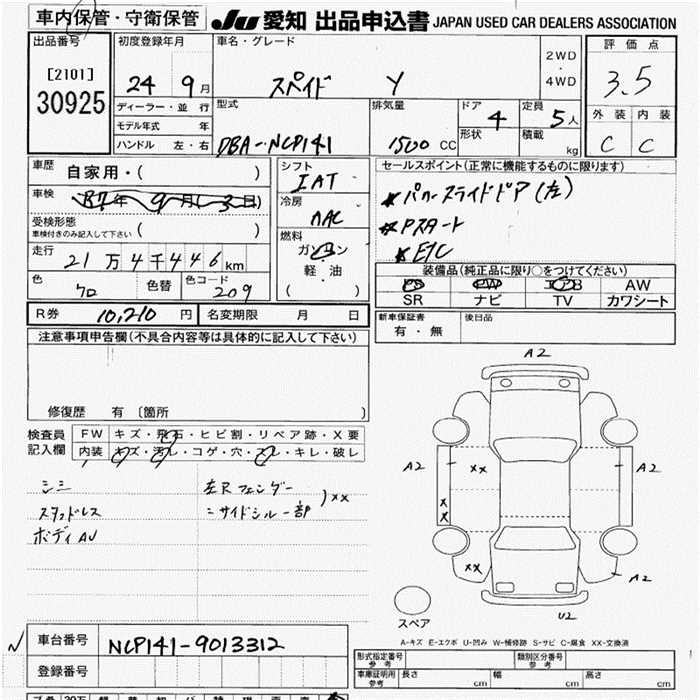 車内保管・守衛保管 JU 愛知 出品申込書 JAPAN USED CAR DEALERS ASSOCIATION
出品番号 初度登録年月 車名・グレード 2WD・4WD 評価点
[2101]
30925
24 9月 スペイド Y 3.5
ディーラー・並行 型式 排気量 ドア 定員 外装 内装
モデル年式 年 4 5人 C C
ハンドル 左・右 DBA-NCP141 1500 CC 形状 積載 kg
車歴 自家用・( ) シフト IAT セールスポイント(正常に機能するものに限ります)
車検 R7年 9月 3日 冷房 AAC *パワースライドドア(左)
受検形態 ( ) *Pスタート
車検付きのみ記入して下さい 燃料 ガソリン *ETC
走行 21万4千446km 軽・油
色 クロ 色替 色コード 209 ( )
装備品(純正品に限り○をつけてください)
PS PW AW
SR ナビ TV カワシート
R券 10,210円 名変期限 月 日 新車保証書 有・無 後日品
注意事項申告欄(不具合内容等は具体的に記入して下さい)
修復歴 有 〔箇所 〕
検査員記入欄 FW キズ・飛石・ヒビ割・リペア跡・X要
内装 キズ・汚レ・コゲ・穴・スレ・キレ・破レ
シミ 左Rフェンダー
スタッドレス ニサイドシル一部 )xx
ボディAU
A2
A2 xx A2
x
x
xx A2
スペア U2
A-キズ E-エクボ U-凹み W-補修跡 S-サビ C-腐食 XX-交換済
車台番号 NCP141-9013312
登録番号
型式指定番号 参考 類別区分番号 参考
車庫証明用 参考 長さ cm 幅 cm 高さ cm